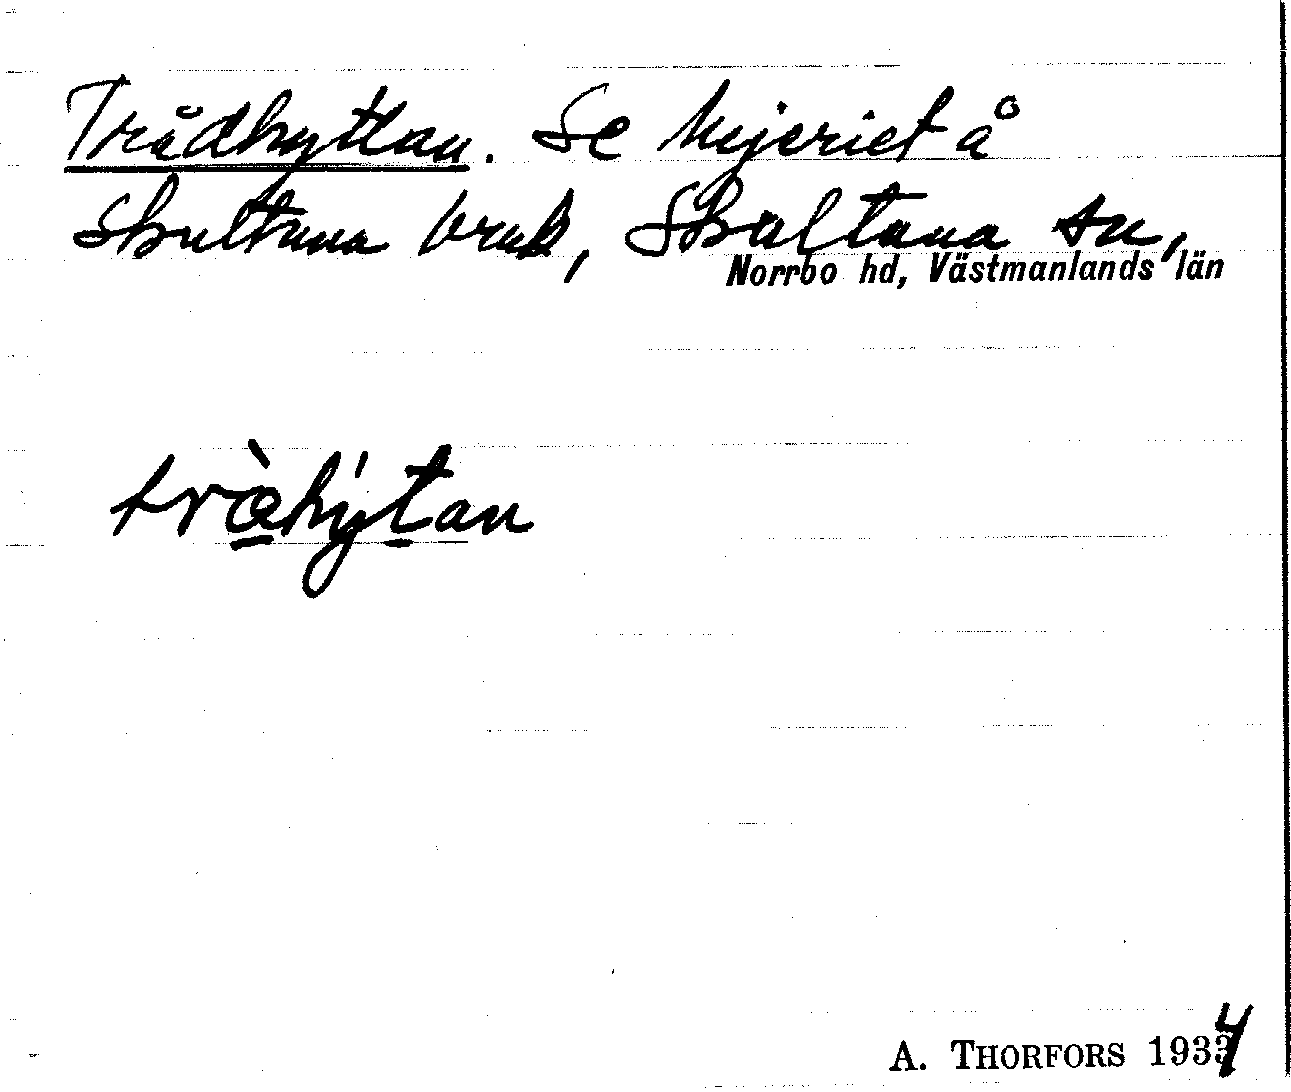 Trådhyttan. Se Mejeriet å
Skultuna bruk, Skultuna sn,
Norrbo hd, Västmanlands län
trœ̀hýtan
A. THORFORS 1934